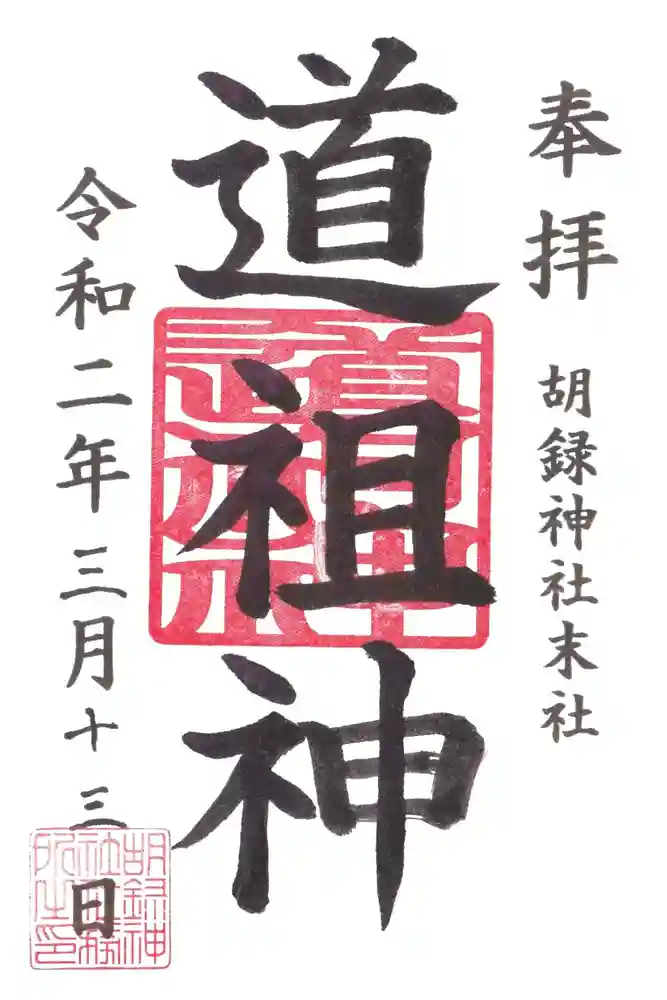 奉拝
胡録神社末社
道祖神
令和二年三月十三日
胡録神
社社務
所之印